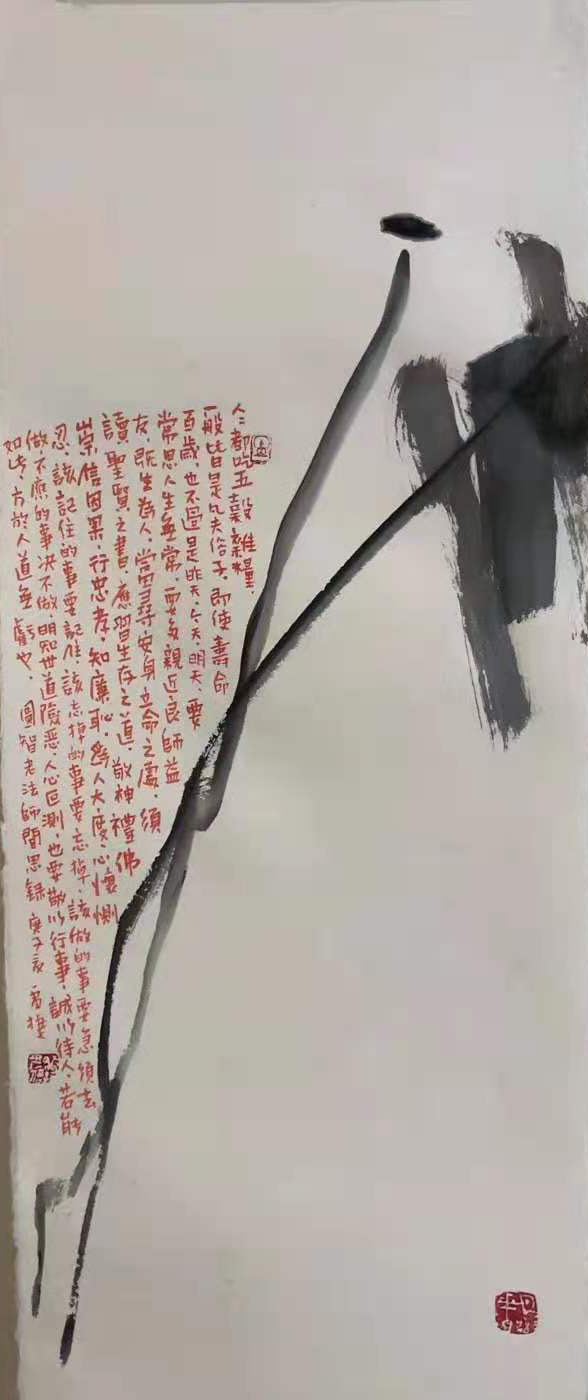 人人都吃五穀雜糧，
一般皆是凡夫俗子，即使壽命
百歲，也不過是昨天、今天、明天，要
常思人生無常，要多親近良師益
友，既生為人，當尋安身立命之處，須
讀聖賢之書，應習生存之道，敬神禮佛
崇信因果，行忠孝，知廉恥，為人大度，心懷惻
忍，該記住的事要記住，該忘掉的事要忘掉，該做的事要急須去
做，不應的事決不做，明知世道險惡，人心叵測，也要敬以行事，誠以待人，若能
如此，方於人道無虧也。圓智老法師閒思錄 庚子亥